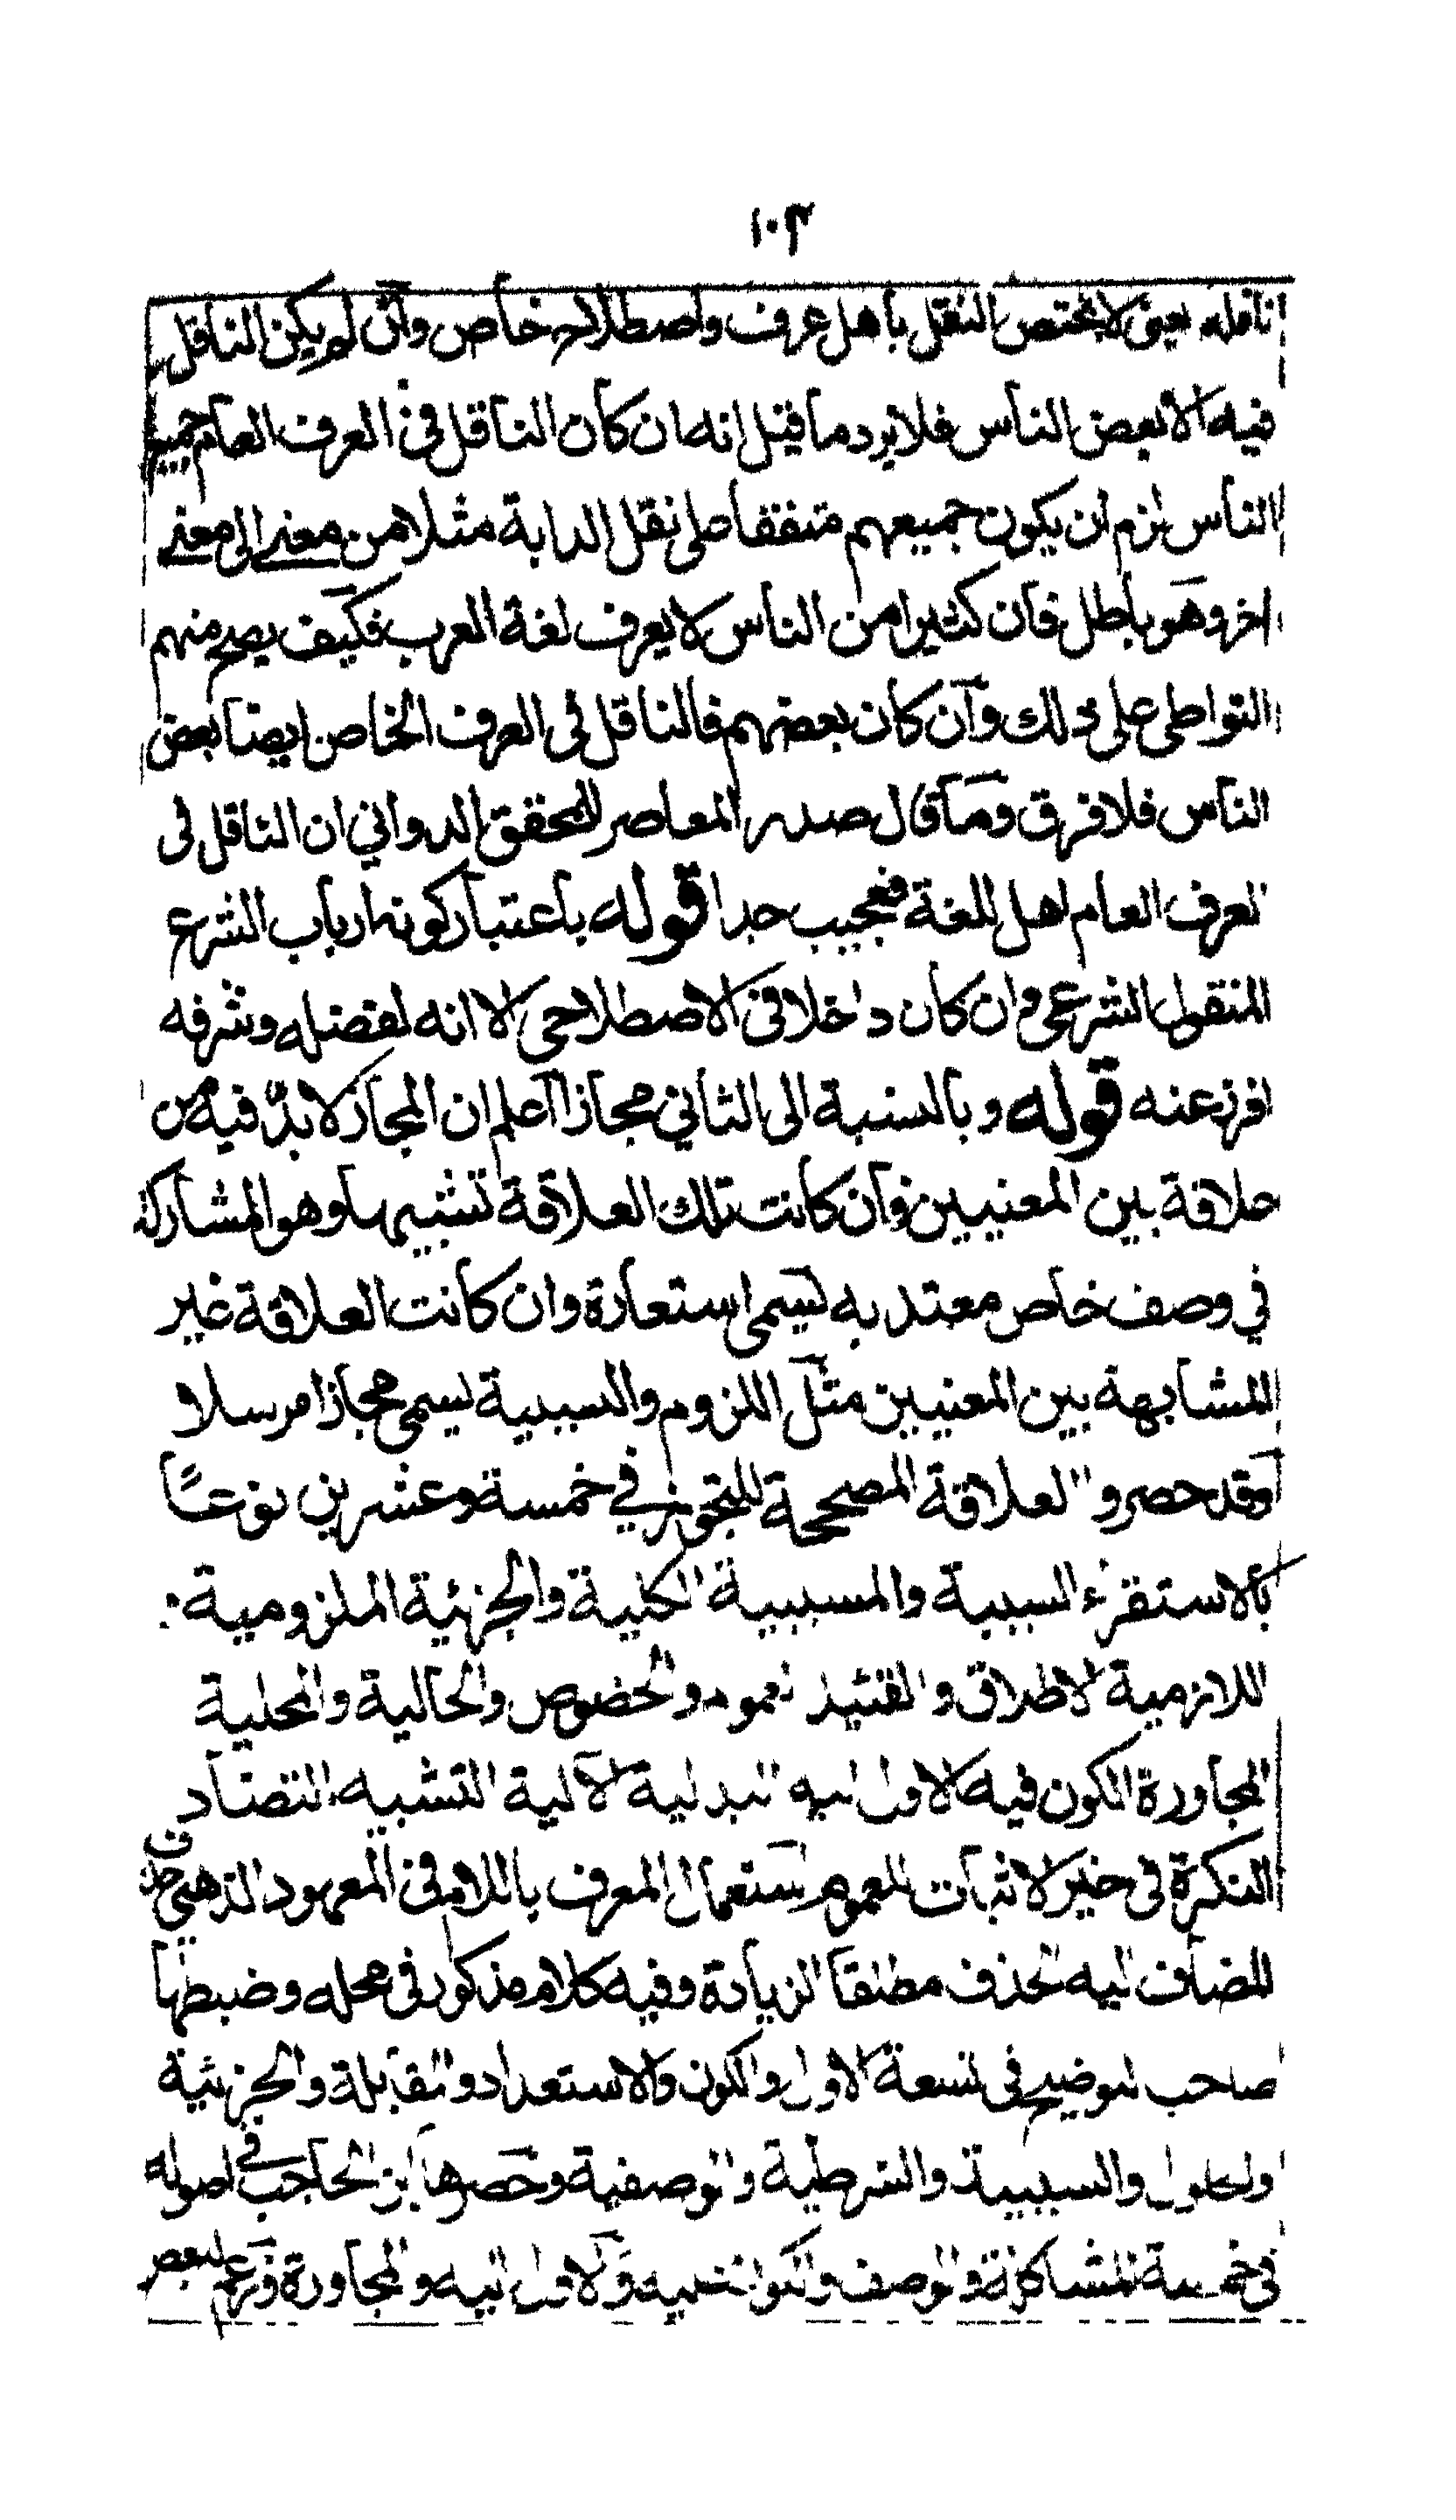 ١٠٢
ناقله يعنى لا يختص النقل باهل عرف واصطلاح خاص وان لم يكن الناقل
فيه الا بعض الناس فلا يرد ما قيل انه ان كان الناقل فى العرف العام جميع
الناس لزم ان يكون جميعهم متفقا على نقل الدابة مثلا من معنى الى معنى
اخر وهو باطل فان كثيرا من الناس لا يعرف لغة العرب فكيف يصح منهم
التواطى على ذلك وان كان بعضهم فالناقل فى العرف الخاص ايضا بعض
الناس فلا فرق وما قال صدر المعاصر للمحقق الدواني ان الناقل فى
لعرف العام اهل اللغة فعجيب جدا قوله باعتبار كونه ارباب الشرع
المنقول الشرعى وان كان داخلا فى الاصطلاحى الا انه لفضله وشرفه
افرز عنه قوله وبالنسبة الى الثاني مجازا اعلم ان المجاز لا بدّ فيه من
علاقة بين المعنيين فان كانت تلك العلاقة تشبيها وهو المشاركة
في وصف خاص معتد به يسمى استعارة وان كانت العلاقة غير
المشابهة بين المعنيين مثل اللزوم والسببية يسمى مجازا مرسلا
وقد حصروا العلاقة المصححة للتجوز في خمسة وعشرين نوعًا
بالاستقراء السببية والمسببية الكلية والجزئية الملزومية
اللازمية الاطلاق والتقييد العموم والخصوص والحالية والمحلية
المجاورة الكون فيه الاول اليه البدلية الآلية التشبيه التضاد
النكرة فى حيز الاثبات للعموم استعمال المعرف باللام فى المعهود الذهنى حذف
المضاف اليه الحذف مطلقا الزيادة وفيه كلام مذكور فى محله وضبطها
صاحب التوضيح فى تسعة الاول والكون والاستعداد والمقابلة والجزئية
والحلول والسببية والشرطية والوصفية وحصرها ابن الحاجب في اصوله
فى خمسة المشاكلة والوصف والكون عليه والاول اليه والمجاورة وزعم البعض